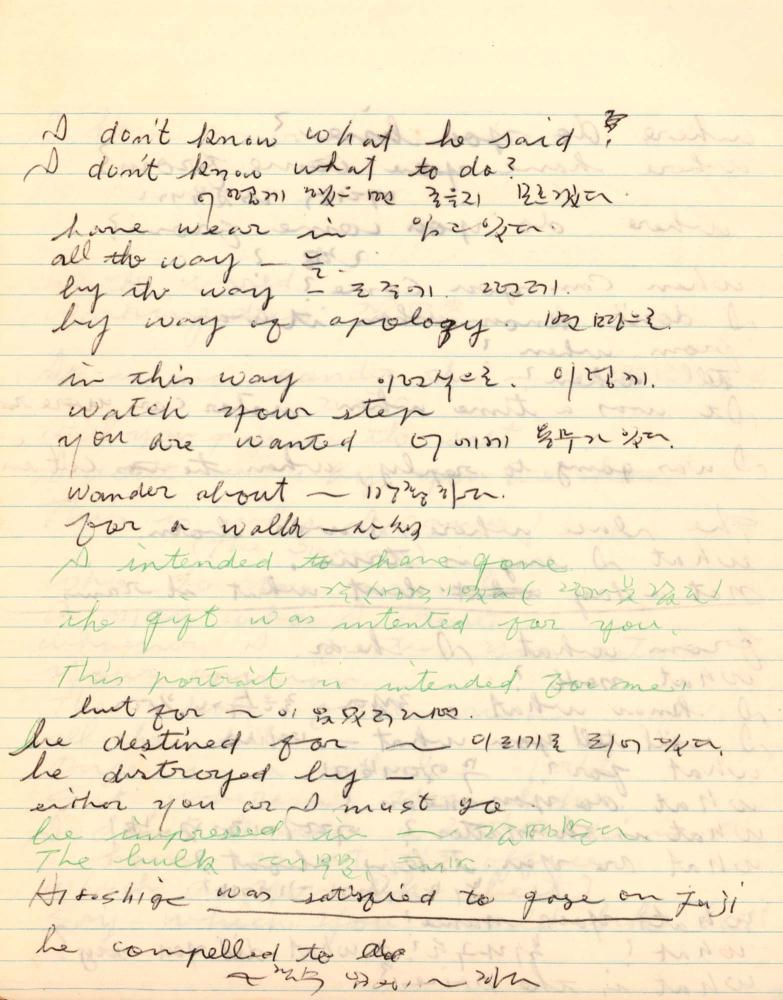 I don't know what he said?
I don't know what to do?
모르겠다.
have wear in 입고 있다.
all the way – 늘.
by the way – 도중에. 그런데.
by way of apology 변명으로.
in this way 이런식으로. 이렇게.
watch your step
you are wanted 너에게 볼무가 있다.
wander about –
for a walk – 산책
I intended to have gone
the gift was intented for you.
This portrait is intended for me.
but for ~ 이 없었더라면.
be destined for ~ 이르기로 되어 있다.
be distroyed by –
either you or I must go
be impressed in ~
The bulk 대부분,
Hiroshige was satisfied to gaze on Fuji
be compelled to do